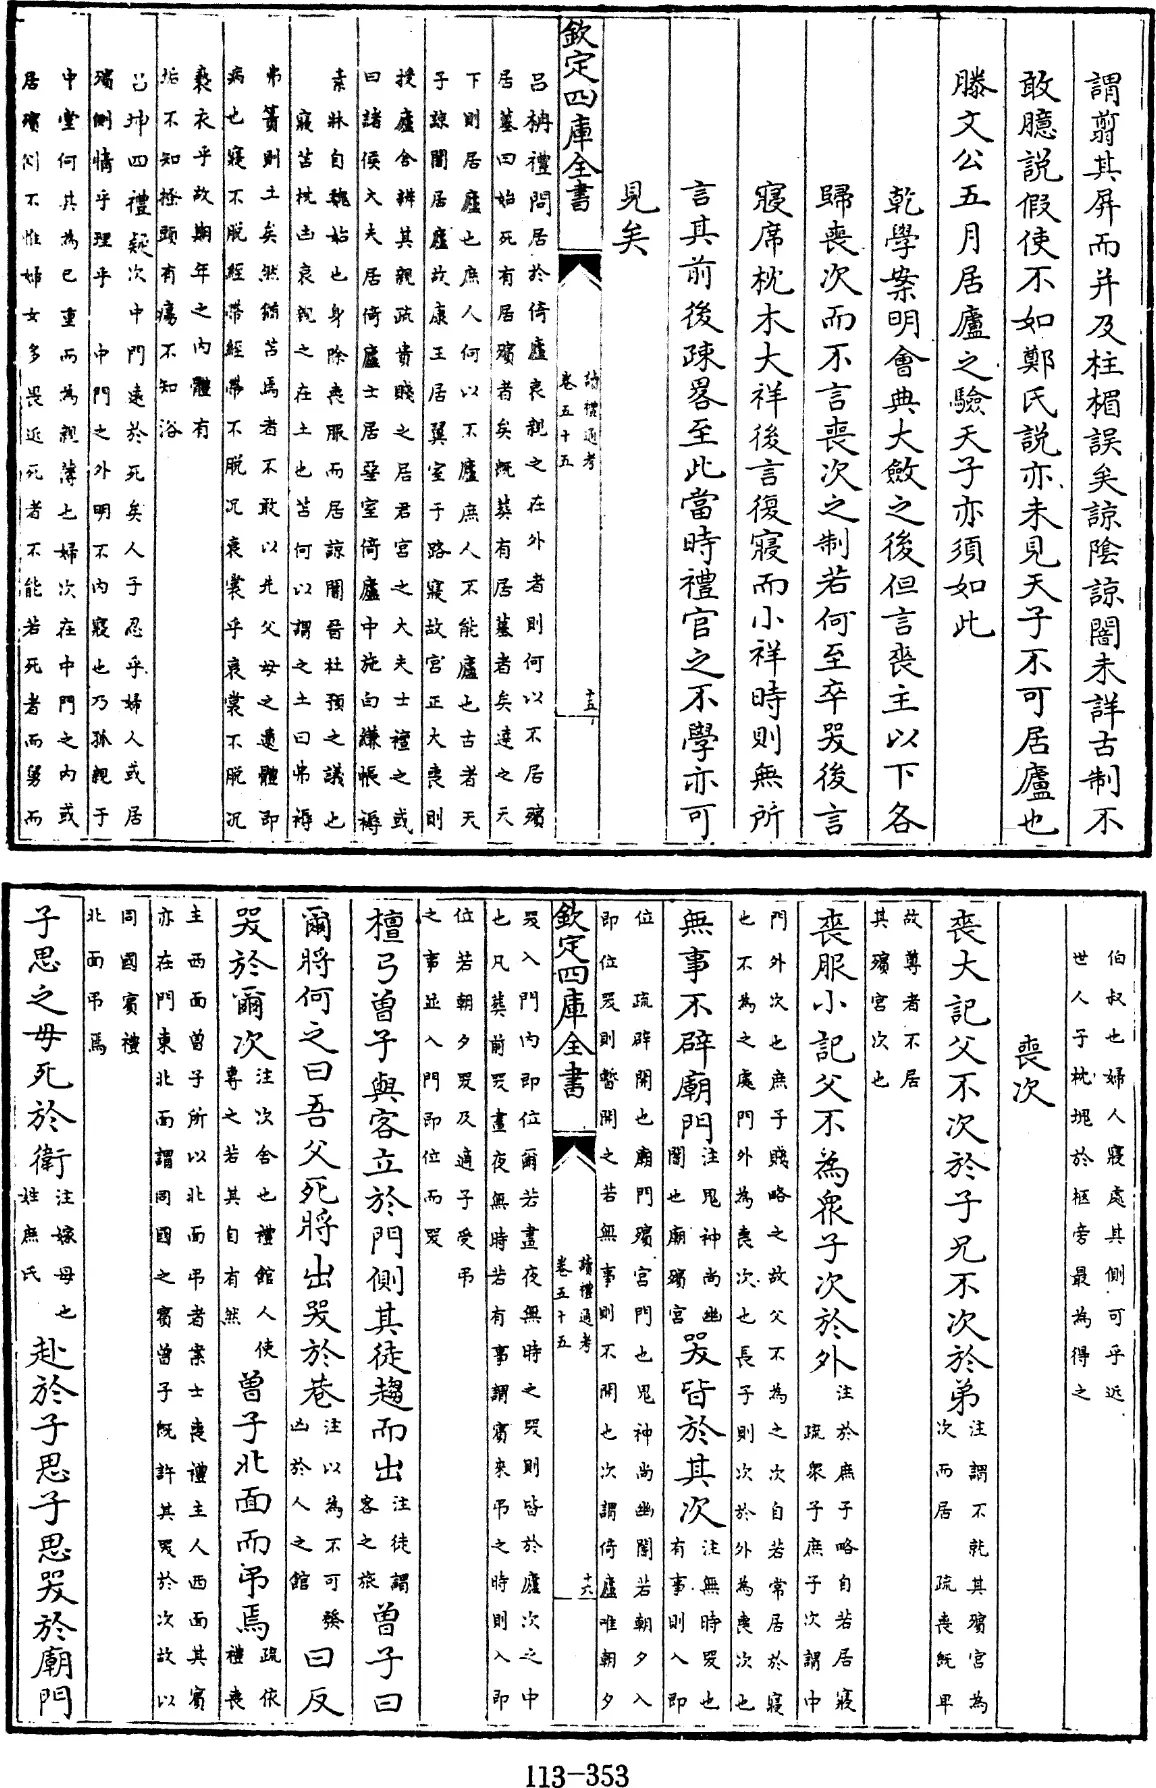 謂翦其屏而并及柱楣誤矣諒陰諒闇未詳古制不
敢臆説假使不如鄭氏説亦未見天子不可居廬也
滕文公五月居廬之驗天子亦須如此
乾學案明會典大斂之後但言喪主以下各
歸喪次而不言喪次之制若何至卒哭後言
寢席枕木大祥後言復寢而小祥時則無所
言其前後疎畧至此當時禮官之不學亦可
見矣
欽定四庫全書
讀禮通考
卷五十五
十五
呂柟禮問居於倚廬哀親之在外者則何以不居殯
居墓曰始死有居殯者矣既葬有居墓者矣達之天
下則居廬也庶人何以不廬庶人不能廬也古者天
子諒闇居廬故康王居翼室于路寢故宮正大喪則
授廬舍辨其親疏貴賤之居君宮之大夫士襢之或
曰諸侯大夫居倚廬士居堊室倚廬中施白縑帳褥
素牀自魏始也身除喪服而居諒闇晉杜預之議也
寢苫枕凷哀親之在土也苫何以謂之土曰弗褥
弗簀則土矣然猶苫焉者不敢以先父母之遺體即
病也寢不脱絰帶絰帶不脱况衰裳乎衰裳不脱况
褻衣乎故期年之内體有
垢不知拯頭有瘍不知浴
呂坤四禮疑次中門遠於死矣人子忍乎婦人或居
殯側情乎理乎 中門之外明不内寢也乃孤親于
中堂何其為己重而為親薄也婦次在中門之内或
居殯側不惟婦女多畏近死者不能若死者而舅而
伯叔也婦人寢處其側可乎近
世人子枕塊於柩旁最為得之
喪次
喪大記父不次於子兄不次於弟 注謂不就其殯宮為次而居 疏喪既卑
故尊者不居其殯宮次也
喪服小記父不為衆子次於外 注於庶子略自若居寢 疏衆子庶子次謂中
門外次也庶子賤略之故父不為之次自若常居於寢也不為之處門外為喪次也長子則次於外為喪次也
無事不辟廟門 注鬼神尚幽闇也廟殯宮 哭皆於其次 注無時哭也有事則入即
位 疏辟開也廟門殯宮門也鬼神尚幽闇若朝夕入即位哭則暫開之若無事則不開也次謂倚廬唯朝夕
欽定四庫全書
讀禮通考
卷五十五
十六
哭入門内即位爾若晝夜無時之哭則皆於廬次之中也凡葬前哭晝夜無時若有事謂賓來弔之時則入即
位若朝夕哭及適子受弔之事並入門即位而哭
檀弓曾子與客立於門側其徒趨而出 注徒謂客之旅 曾子曰
爾將何之曰吾父死將出哭於巷 注以為不可發凶於人之館 曰反
哭於爾次 注次舍也禮館人使專之若其自有然 曾子北面而弔焉 疏依禮喪
主西面曾子所以北面弔者案士喪禮主人西面其賓亦在門東北面謂同國之賓曾子既許其哭於次故以
同國賓禮北面弔焉
子思之母死於衛 注嫁母也姓庶氏 赴於子思子思哭於廟門
113-353